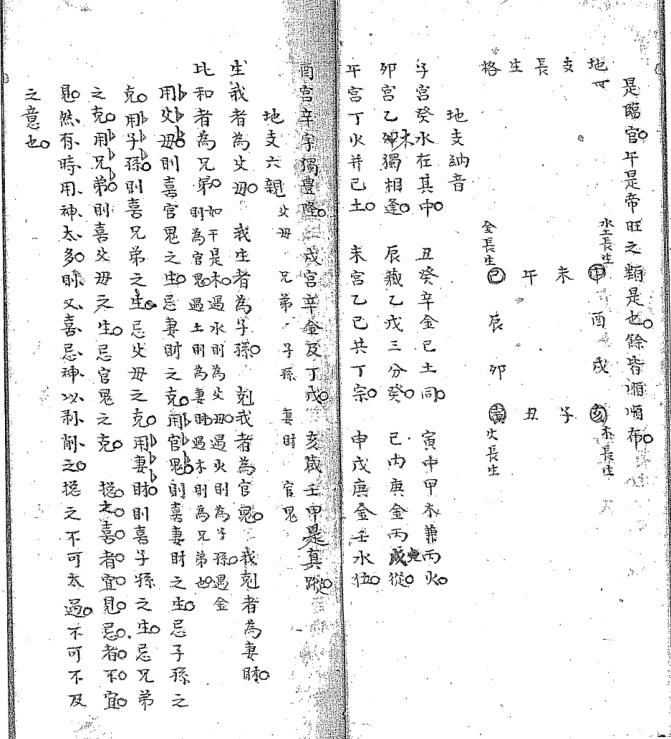 是臨官午是帝旺之類是也餘皆順順布
地支長生格
水土長生
木長生
金長生
火長生
申 酉 戌 亥
未 子
午 丑
巳 辰 卯 寅
地支納音
子宮癸水在其中 丑癸辛金己土同 寅中甲木兼丙火
卯宮乙木獨相逢 辰藏乙戊三分癸 巳內庚金丙戊從
午宮丁火并己土 未宮乙己共丁宗 申戊庚金壬水位
酉宮辛字獨豊隆 戌宮辛金及丁戊 亥藏壬甲是真蹤
地支六親 父母 兄弟 子孫 妻財 官鬼
生我者為父母 我生者為子孫 剋我者為官鬼 我剋者為妻財
比和者為兄弟 如干是木遇水則為父母遇火則為子孫遇金
則為官鬼遇土則為妻財遇木則為兄弟也
用父母則喜官鬼之生忌妻財之克用官鬼則喜妻財之生忌子孫之
克用子孫則喜兄弟之生忌父母之克用妻財則喜子孫之生忌兄弟
之克用兄弟則喜父母之生忌官鬼之克 總之喜者宜見忌者不宜
見然有時用神太多財又喜忌神以剥削之總之不可太過不可不及
之意也